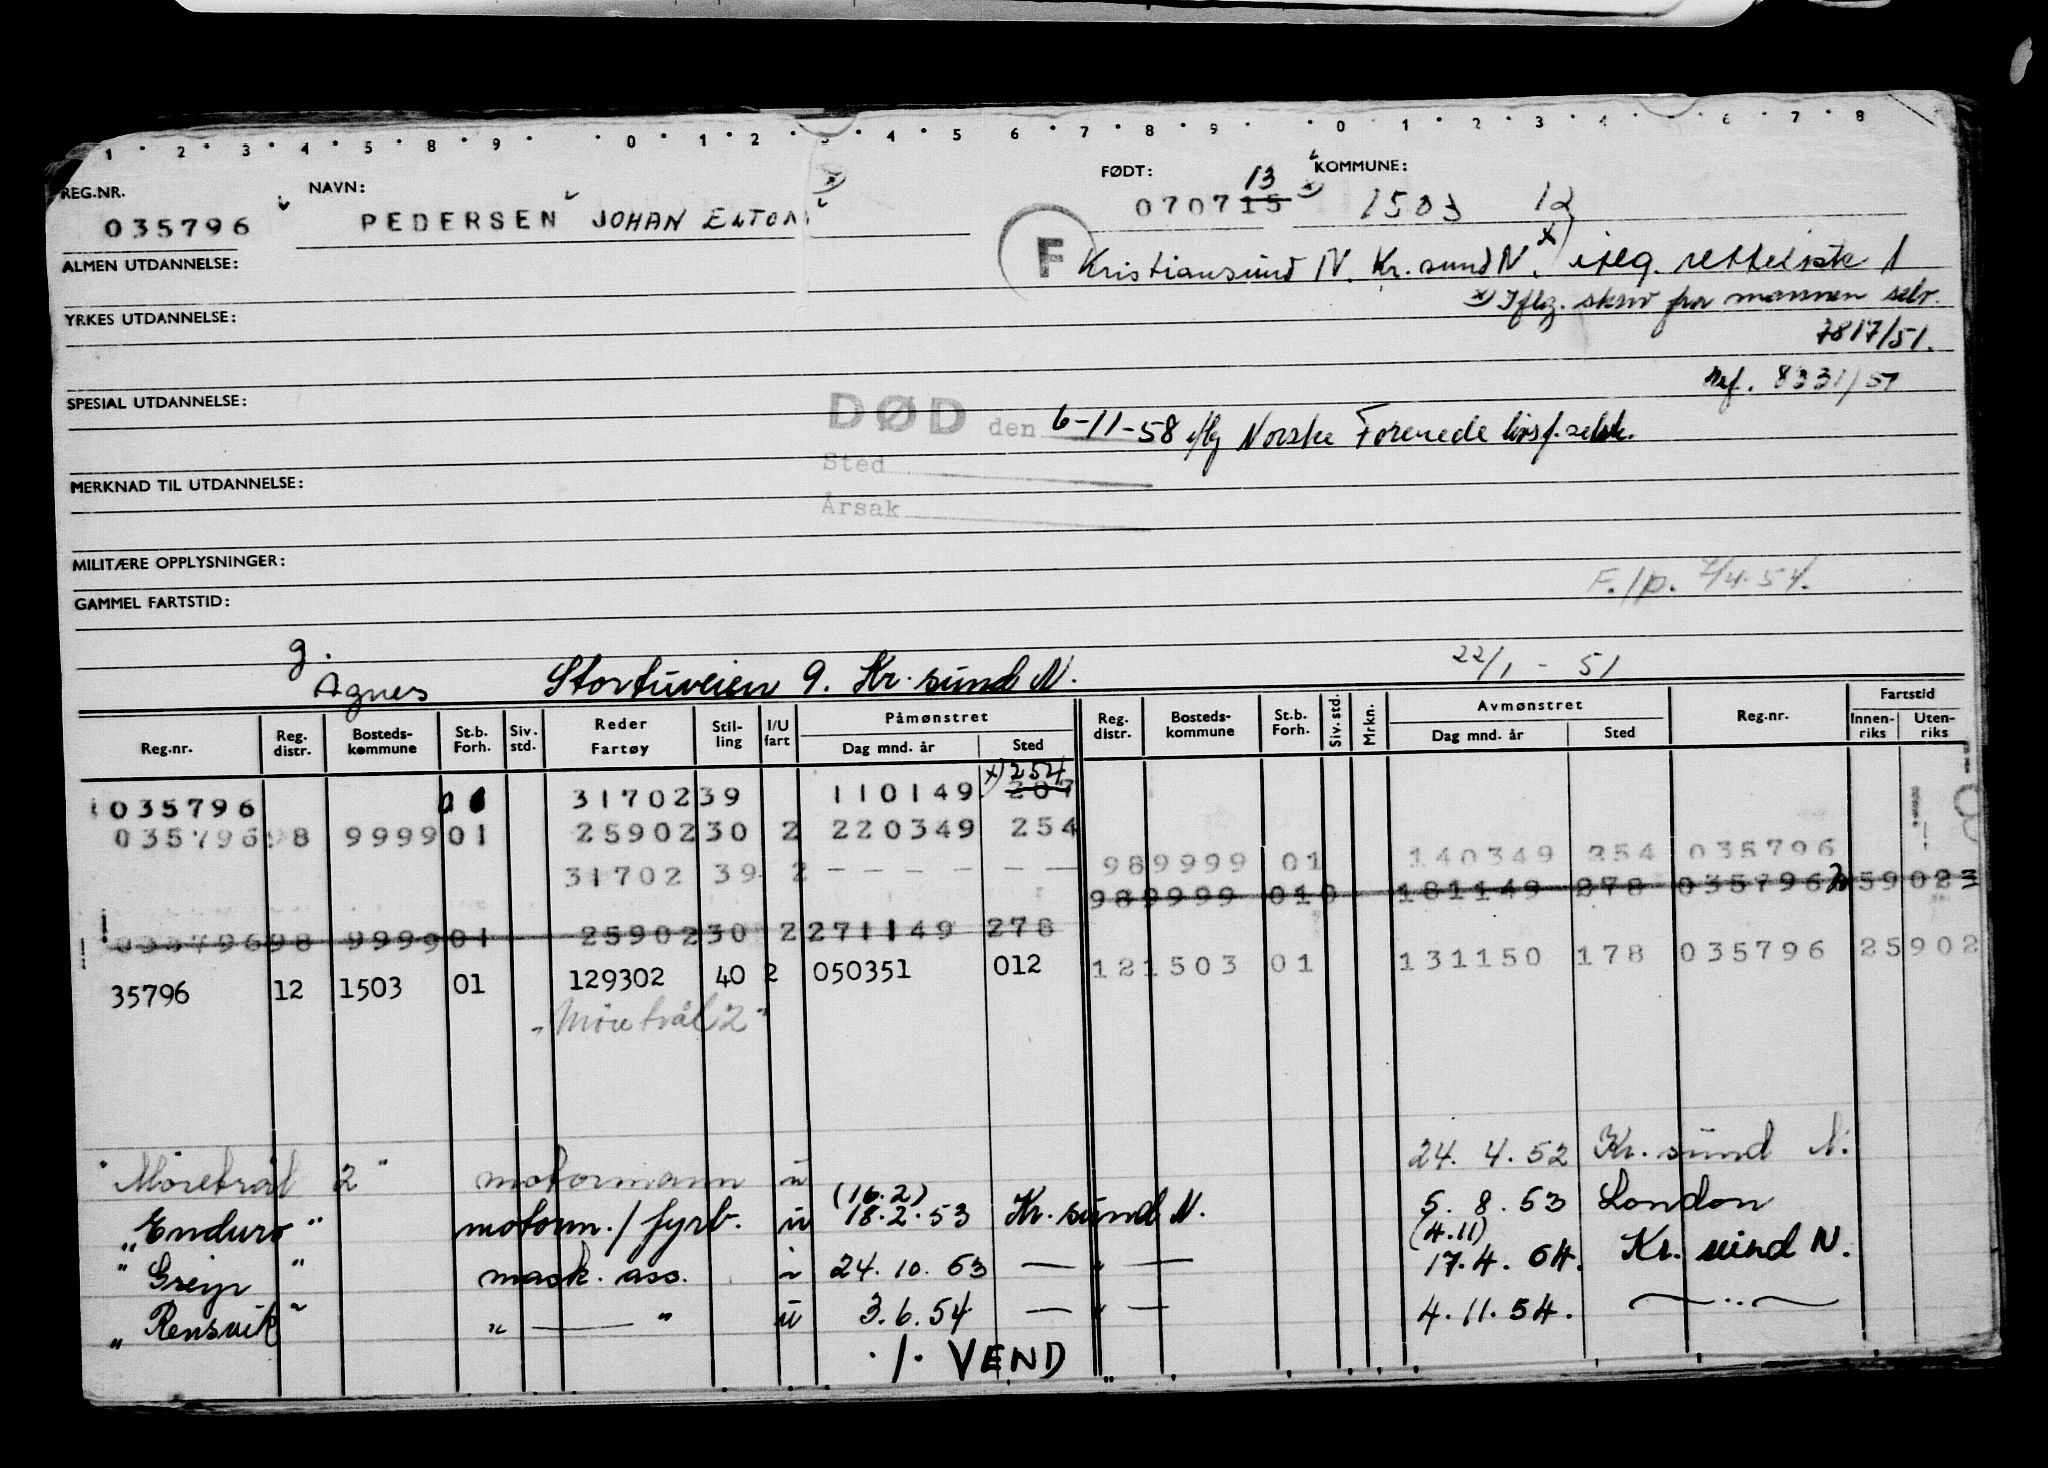 1 2 3 4 5 8 9 0 1 2 3 4 5 6 7 8 9 0 1 2 3 4 6 7 8
REG.NR. NAVN: FØDT: 13 KOMMUNE:
035796 PEDERSEN JOHAN ELTON x) 070715 x) 1503 12
ALMEN UTDANNELSE: F Kristiansund N. Kr.sund N. x) iflg. rettelseste 1
x) Iflg. skriv fra mannen selv.
YRKES UTDANNELSE: 7817/51.
ref. 8331/51
SPESIAL UTDANNELSE:
DØD den 6-11-58 iflg Norske Forenede livsf.selsk.
Sted
MERKNAD TIL UTDANNELSE:
Årsak
MILITÆRE OPPLYSNINGER:
F./p. 2/4.54.
GAMMEL FARTSTID:
g.
Agnes Stortuveien 9. Kr.sund N. 22/1 - 51
Reg.nr. Reg. distr. Bosteds-kommune St.b. Forh. Siv. std. Reder Fartøy Stil-ling I/U fart Påmønstret Dag mnd. år Sted Reg. distr. Bosteds-kommune St.b. Forh. Siv. std. Mrkn. Avmønstret Dag mnd. år Sted Reg.nr. Fartstid Innen-riks Uten-riks
x) 254
035796 31702 39 110149 207
035796 98 9999 01 25902 30 2 220349 254
98 9999 01 140349 254 035796
31702 39 2 - - - - - -
98 9999 01 181149 278 035796 25902
035796 98 9999 01 25902 30 2 271149 278
12 1503 01 131150 178 035796 25902
35796 12 1503 01 129302 40 2 050351 012
"Møretrål 2"
"Møretrål 2" motormann u 24. 4. 52 Kr.sund N.
(16.2)
"Enduro" motorm./fyrb. u 18.2.53 Kr.sund N. 5. 8. 53 London
(4.11)
"Greip" mask. ass. i 24. 10. 53 — " — 17.4. 54. Kr. sund N.
"Rensvik" " — " u 3.6.54 — " — 4.11.54. — " —
./. VEND